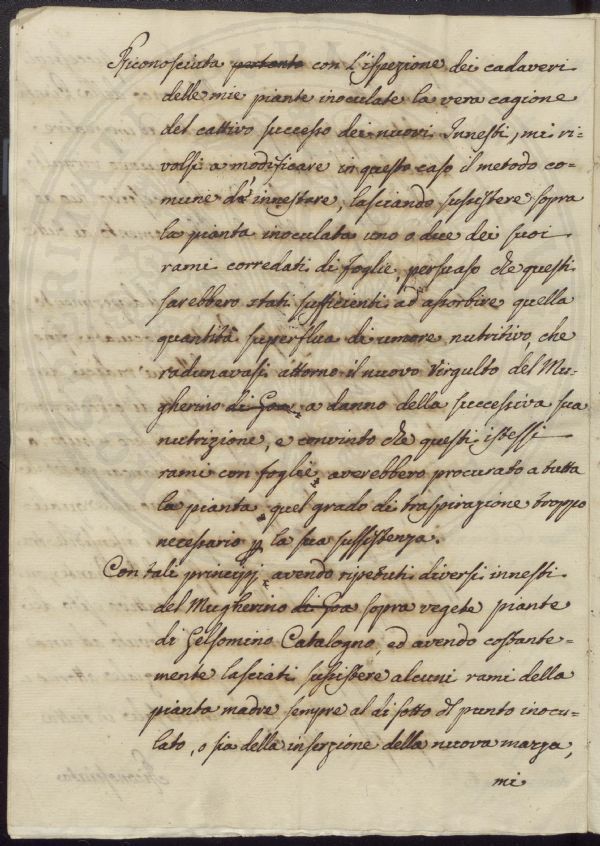 Riconosciuta pertanto con l'ispezione dei cadaveri
delle mie piante inoculate la vera cagione
del cattivo successo dei nuovi Innesti, mi ri-
volsi a modificare in questo caso il metodo co-
mune d'innestare, lasciando sussistere sopra
la pianta inoculata uno o due dei suoi
rami corredati di foglie, persuaso che questi
sarebbero stati sufficienti ad assorbire quella
quantità superflua di umore nutritivo, che
radunavasi attorno il nuovo Virgulto del Mu-
gherino di Goa, a danno della successiva sua
nutrizione, e convinto che questi istessi
rami con foglie averebbero procurato a tutta
la pianta quel grado di traspirazione troppo
necessario p la sua sussistenza.
Con tali principj avendo ripetuti diversi innesti
del Mugherino di Goa sopra vegete piante
di Gelsomino Catalogno, ed avendo costante-
mente lasciati sussistere alcuni rami della
pianta madre sempre al di sotto dl punto inocu-
lato, o sia della inserzione della nuova marza,
mi